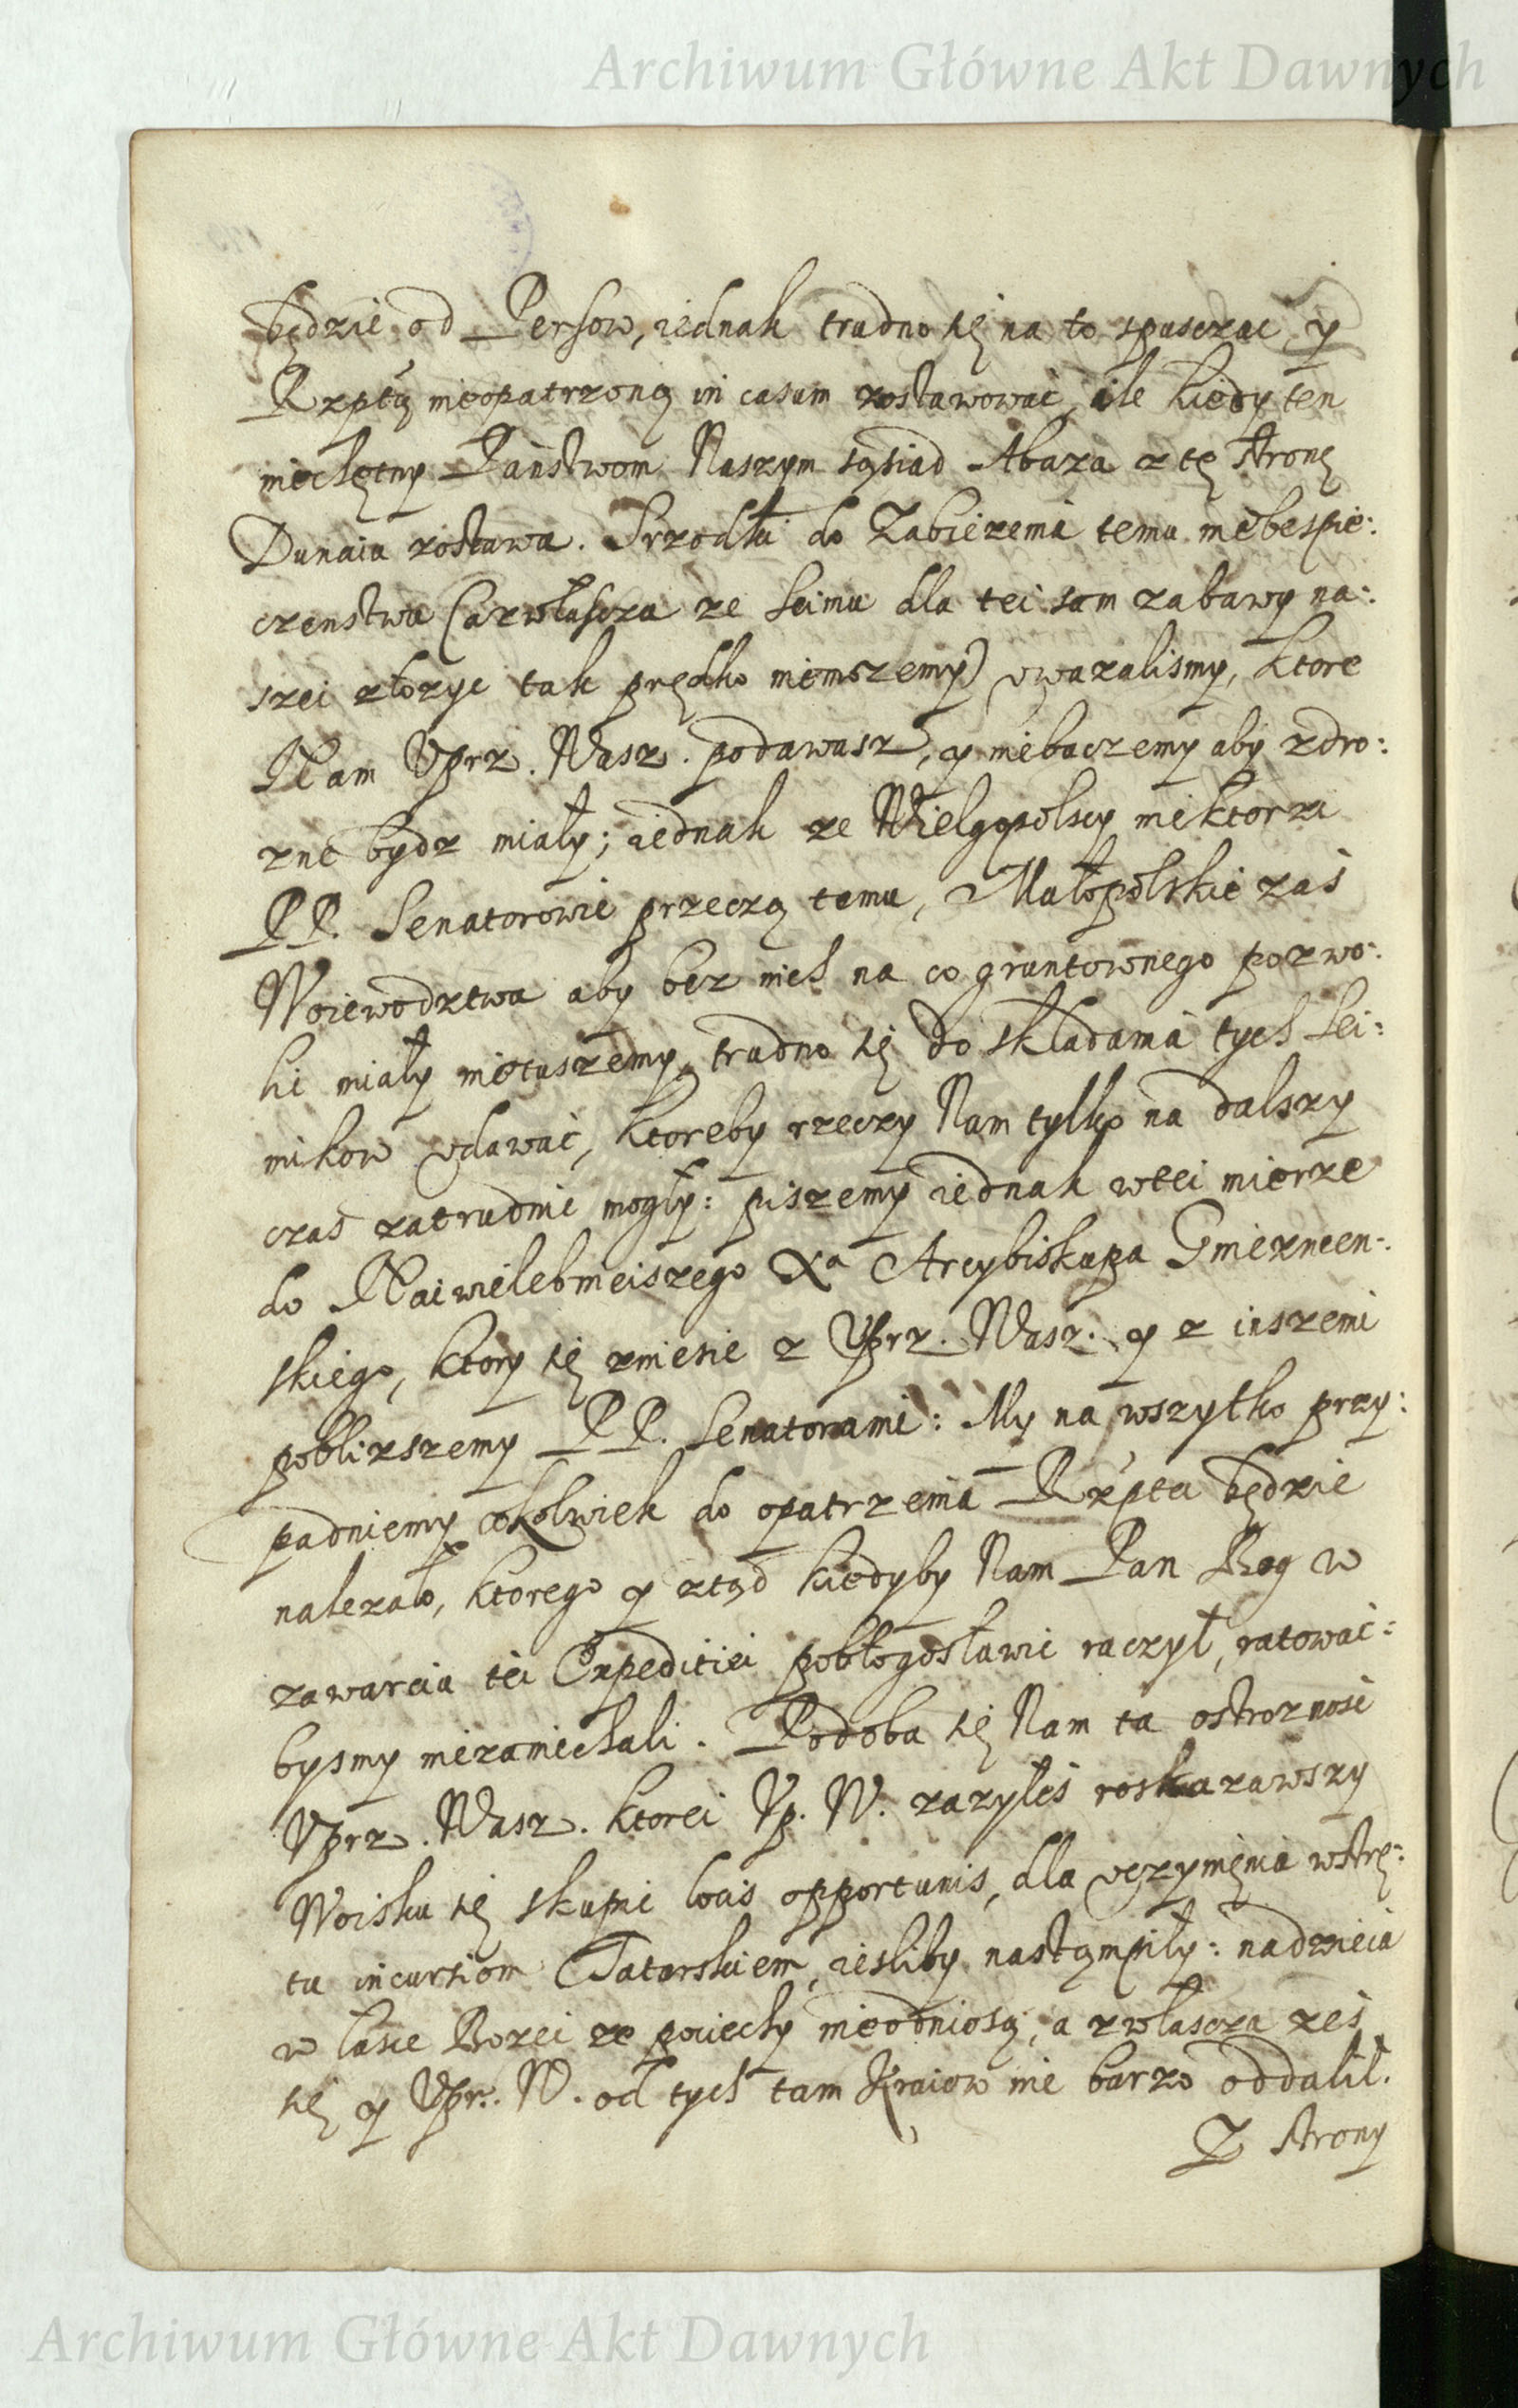 Archiwum Główne Akt Dawnych
będzie od Persow, iednak trudno się na to spusczac, y
Rzptą nieopatrzoną in casum zostawować, ile kiedy ten
niechętny Państwom Naszym sąsiad Abaza z tę stronę
Dunaiu zostawa. Srzodki do Zabieżenia temu niebespie:
czenstwu (azwłascza ze Seimu dla tei tam zabawy na:
szei złozyc tak prędko niemozemy) vwazalismy, ktore
Nam Vprz. Wasz. podawasz, y niebaczemy aby zdro:
zne bydz miały; iednak ze Wielgopolscy niektorzi
PP. Senatorowie przeczą temu, Małopolskie zaś
Woiewodztwa aby bez nich na co gruntownego pozwo:
lić miały nietuszemy, trudno się do składania tych Sei:
mikow vdawać, ktoreby rzeczy Nam tylko na dalszy
czas zatrudnić mogły: piszemy iednak wtei mierze
do Naiwielebnieiszego Xa Arcybiskupa Gnieznien:
skiego, ktory się zniesie z Vprz. Wasz. y z inszemi
poblizszemy PP. Senatorami: My na wszytko przy:
padniemy cokolwiek do opatrzenia Rzptei będzie
nalezało, ktorego y ztąd kiedyby Nam Pan Bog w
zawarciu tei Expeditiei pobłogosławić raczył, ratować:
bysmy niezaniechali. Podoba się Nam ta ostroznosć
Vprz. Wasz. ktorei Vp. W. zazyłeś roskazawszy
Woisku się skupić locis opportunis, dla vczynięnia wstrę:
tu incursiom Tatarskiem, iesliby nastąmpiły: nadzieia
w łasce Bozei ze pociechy nieodniosą, a zwłascza ześ
się y Vpr. W. od tych tam Kraiow nie barzo oddalił.
Z strony
Archiwum Główne Akt Dawnych